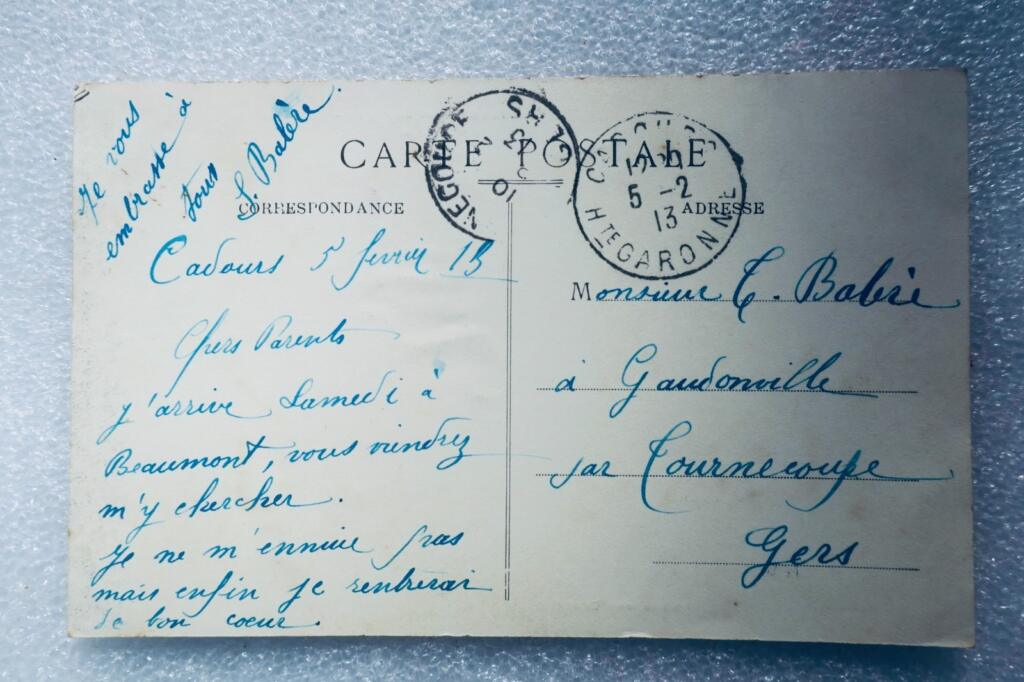 Je vous
embrasse à
tous
S. Balère.
CARTE POSTALE
CORRESPONDANCE
ADRESSE
GERS
10
5 -2
13
Hte GARONNE
Cadours 5 fevrier 13
Chers Parents
j'arrive Samedi à
Beaumont, vous viendrez
m'y chercher.
Je ne m'ennuie pas
mais enfin je rentrerai
de bon coeur.
Monsieur T. Balère
à Gaudonville
par Tournecoupe
Gers